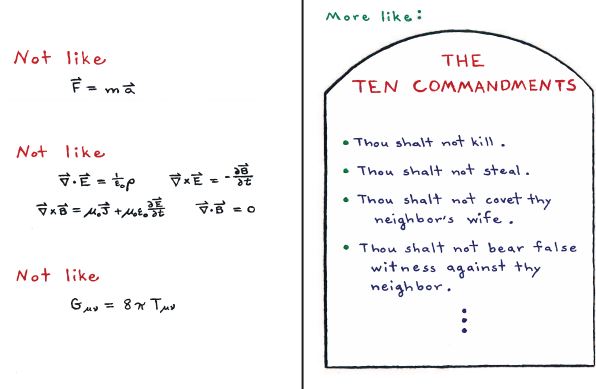 Not like
F⃗ = m a⃗
Not like
∇⃗·E⃗ = 1/ε₀ ρ    ∇⃗×E⃗ = -∂B⃗/∂t
∇⃗×B⃗ = μ₀J⃗ + μ₀ε₀ ∂E⃗/∂t    ∇⃗·B⃗ = 0
Not like
Gμν = 8π Tμν
More like:
THE
TEN COMMANDMENTS
• Thou shalt not kill.
• Thou shalt not steal.
• Thou shalt not covet thy
neighbor's wife.
• Thou shalt not bear false
witness against thy
neighbor.
⋮